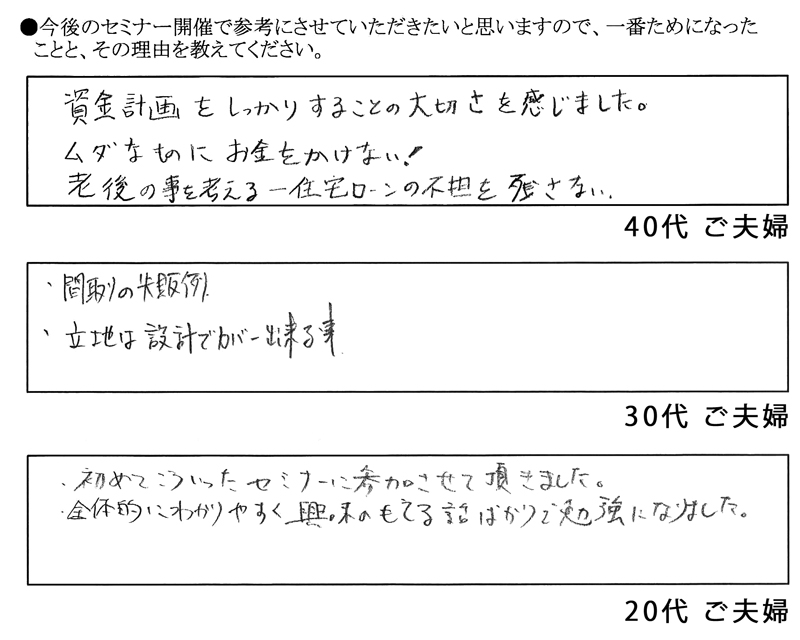 ●今後のセミナー開催で参考にさせていただきたいと思いますので、一番ためになった
ことと、その理由を教えてください。
資金計画をしっかりすることの大切さを感じました。
ムダなものにお金をかけない!
老後の事を考える―住宅ローンの不担を残さない.
40代 ご夫婦
・間取りの失敗例.
・立地は設計でカバー出来る事.
30代 ご夫婦
・初めてこういったセミナーに参加させて頂きました。
・全体的にわかりやすく興味のもてる話ばかりで勉強になりました。
20代 ご夫婦